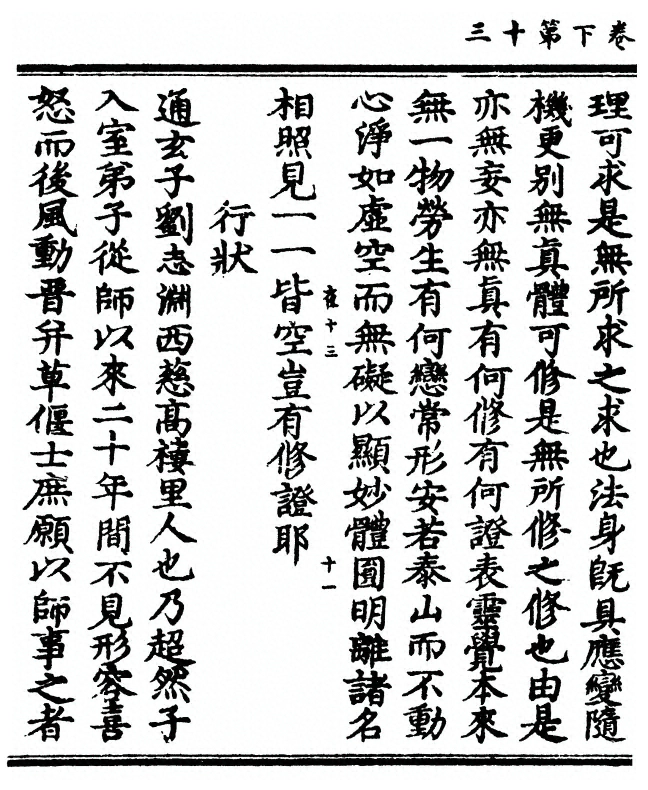 卷下第十三
理可求是無所求之求也法身既具應變隨
機更別無眞體可修是無所修之修也由是
亦無妄亦無眞有何修有何證表靈覺本來
無一物勞生有何戀常形安若泰山而不動
心淨如虛空而無礙以顯妙體圓明離諸名
夜十三
十一
相照見一一皆空豈有修證耶
行狀
通玄子劉志淵西慈高樓里人也乃超然子
入室弟子從師以來二十年間不見形容喜
怒而後風動晉幷草偃士庶願以師事之者